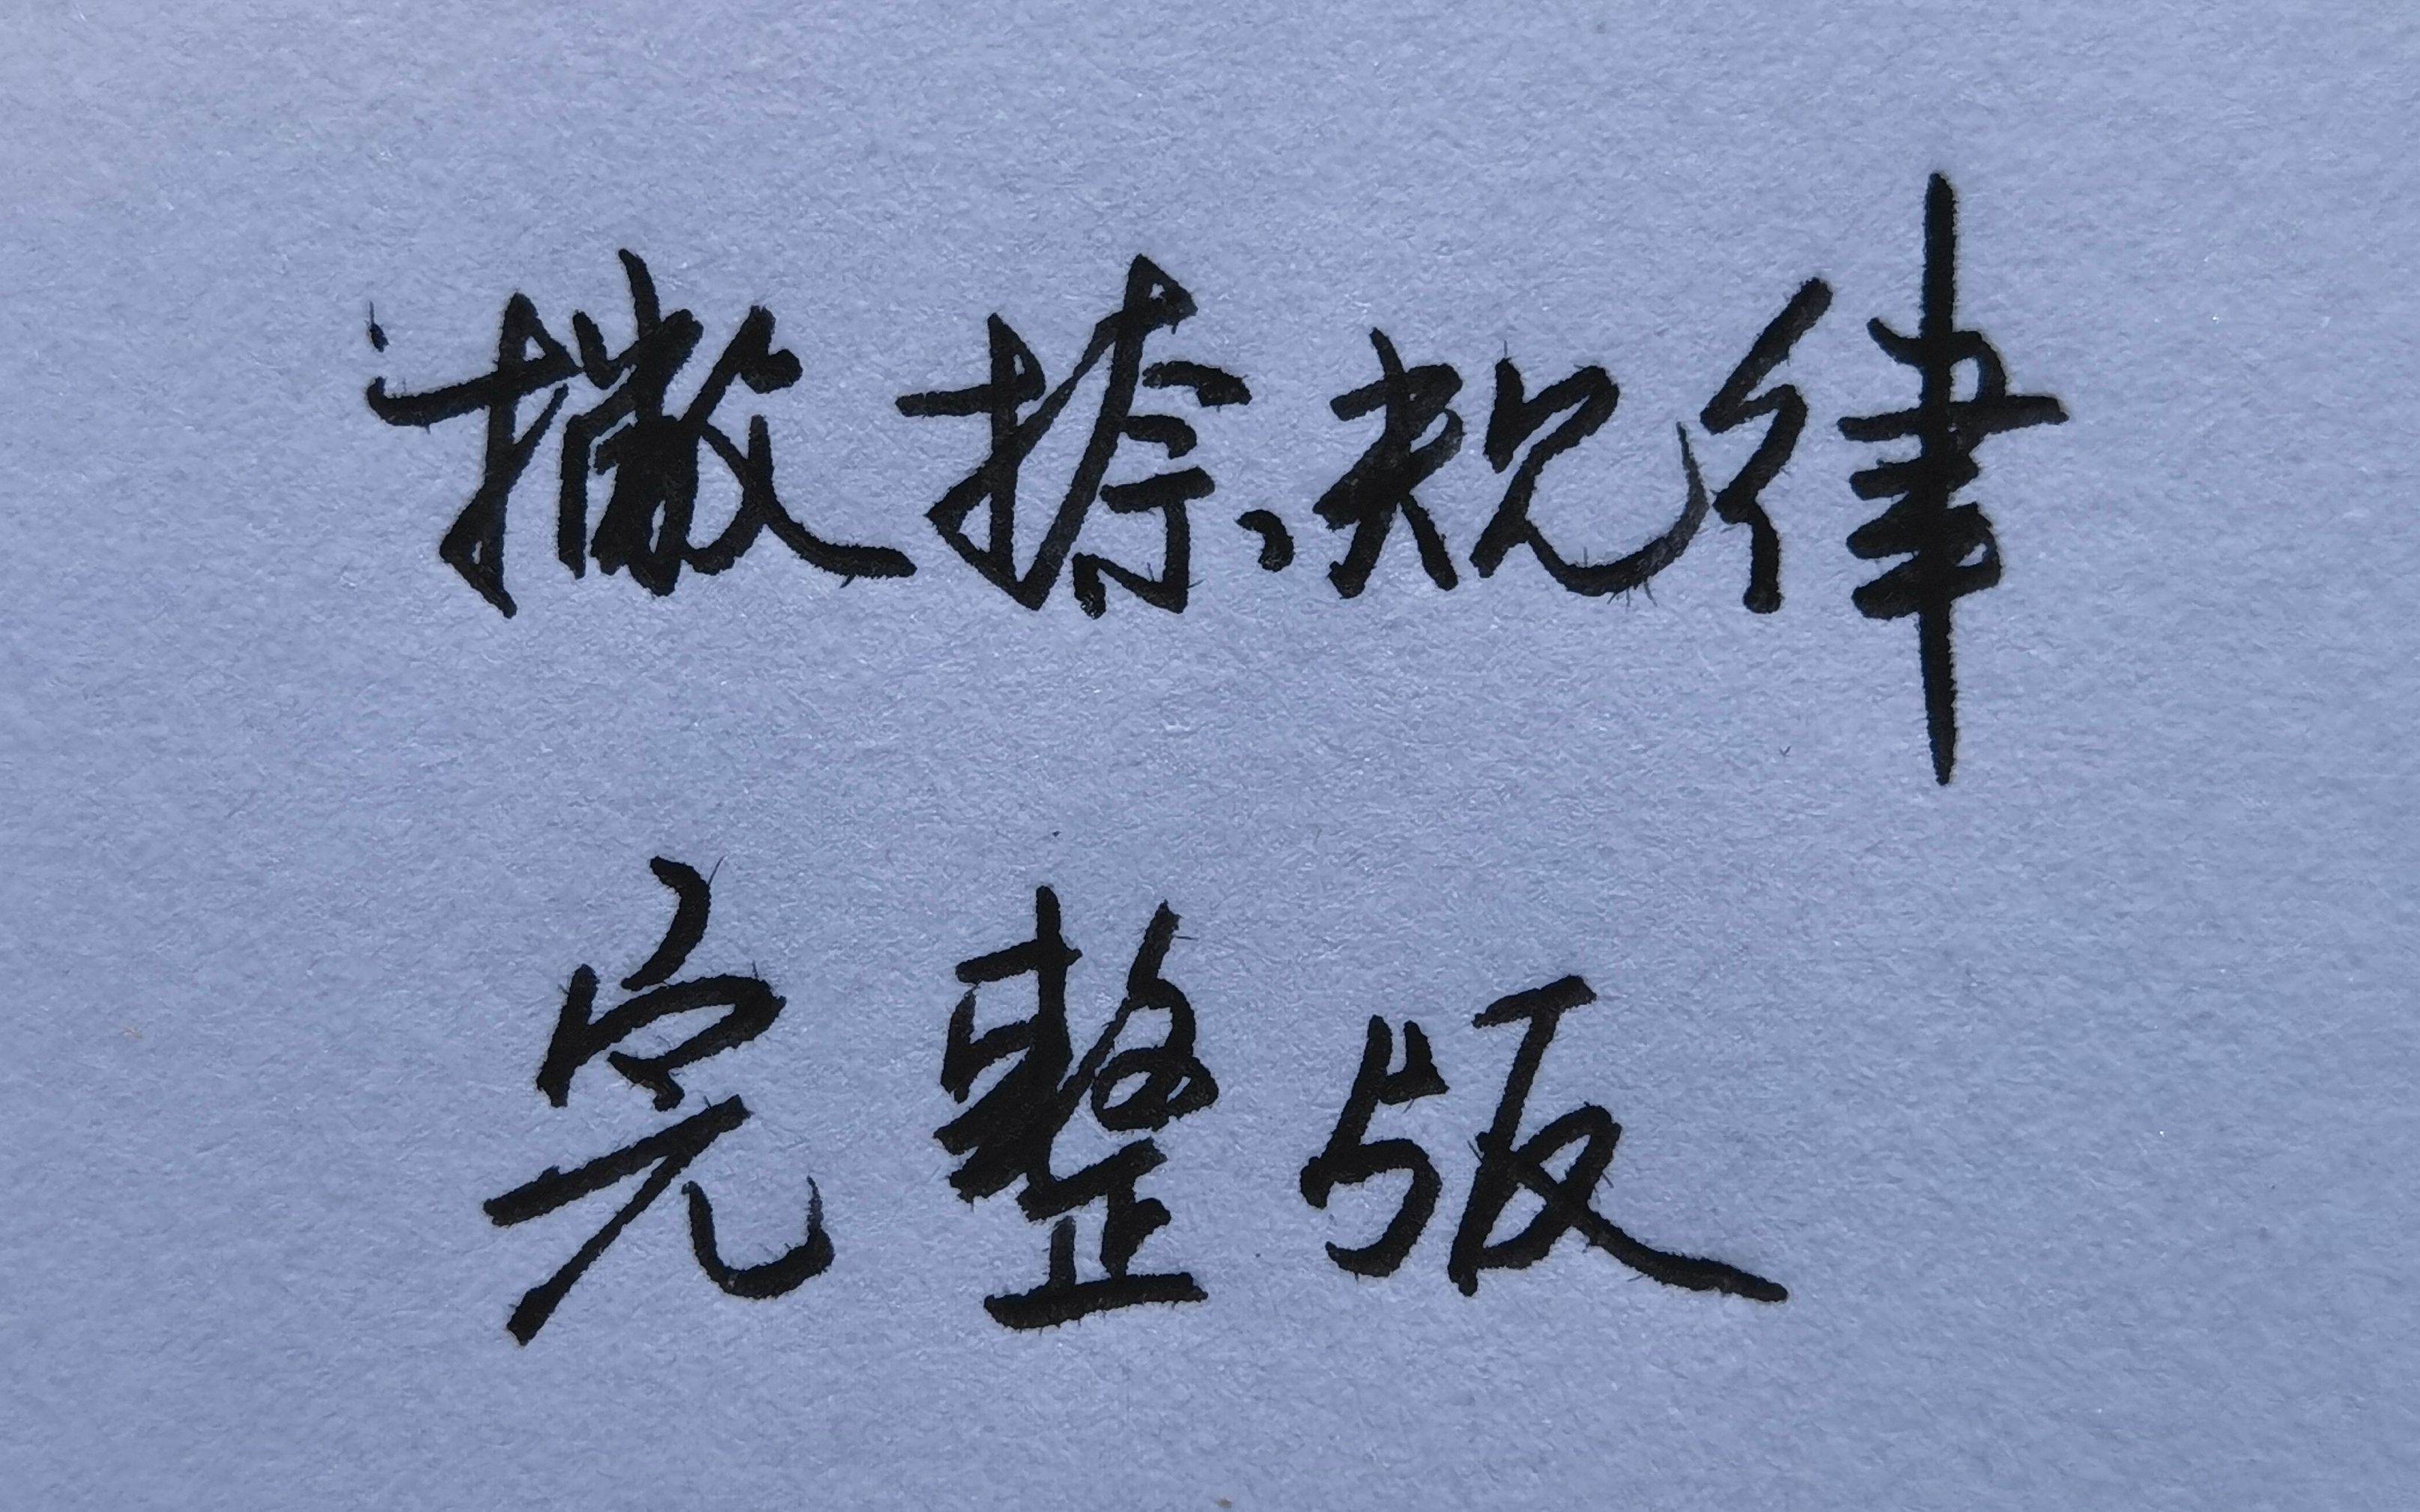 撇捺规律
完整版